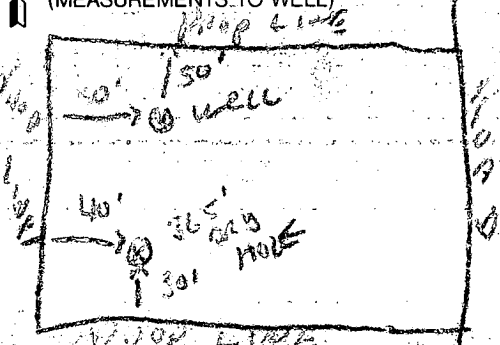 (MEASUREMENTS TO WELL)
Prop Line
50'
40'
Well
Prop
Line
ROAD
40'
365'
DRY
HOLE
30'
Prop Line